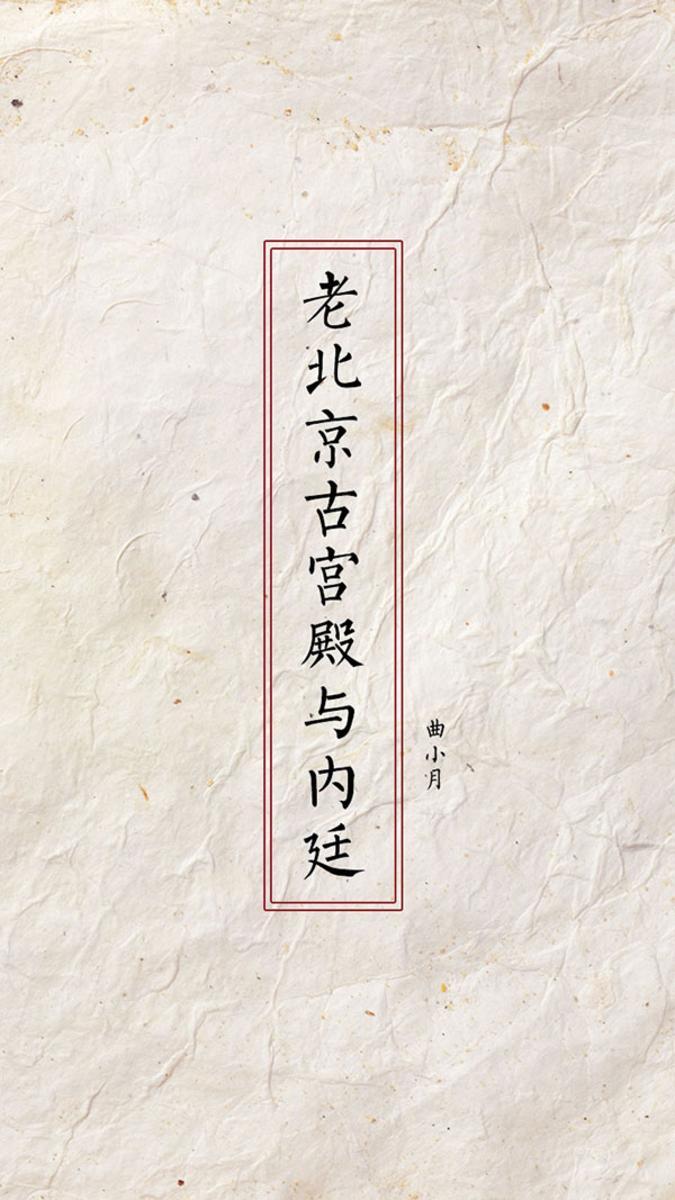 老北京古宫殿与内廷
曲小月